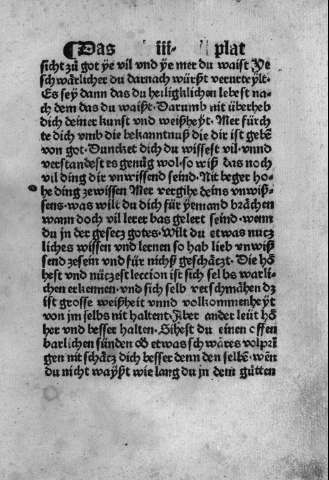 ¶Das iii· plat
sicht zů got ye vil vnd ye mer du waist ye
schwärlicher du darnach würst verurteylt·
Es sey dann das du heiligklichen lebest na-
ch dem das du waißt· Darumb nit überheb
dich deiner kunst vnd weißheyt· Mer fürch
te dich vmb die bekanntnuß die dir ist gebē
von got· Duncket dich du wissest vil vnnd
verstandest es genůg wol· so wiß das noch
vil ding dir vnwissend seind· Nit beger ho-
he ding zewissen Mer vergihe deins vnwiß-
sens· was wilt du dich für yemand brächen
wann doch vil lerer bas gelert seind· wenn
du jn der gesecz gotes· Wilt du etwas nucz
liches wissen vnd lernen so hab lieb vnwiß
send zesein vnd für nichß geschäczt· Die hö
hest vnd nüczest leccion ist sich selbs warli-
chen erkennen· vnd sich selb verschmähen dz
ist grosse weißheit vnnd volkommenheyt
von jm selbs nit haltent· Aber ander leüt hö
her vnd besser halten· Sihest du einen offen
barlichen sünden oð etwas schwäres volprī
gen nit schäcz dich besser denn den selbē· wēn
du nicht wayßt wie lang du jn dem gůtten